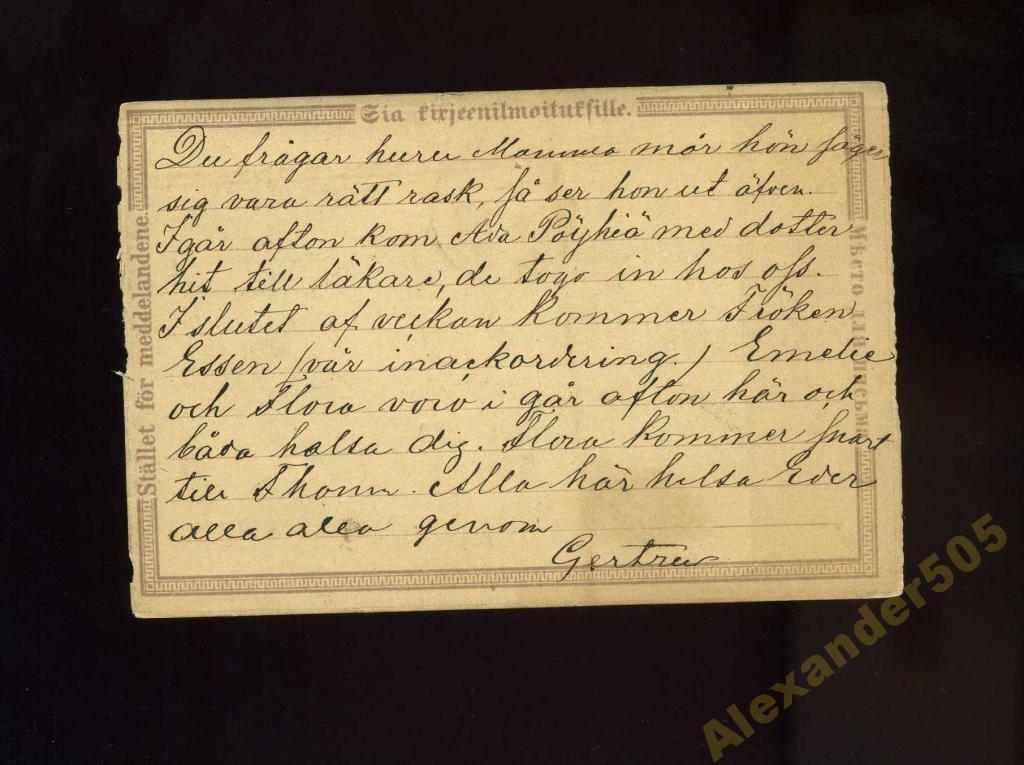 Sia kirjeenilmoituksille.
Stället för meddelandene.
Мѣсто для письма
Du frågar huru Mamma mår hon säger
sig vara rätt rask, så ser hon ut äfven.
Igår afton kom Ada Pöyhiä med dotter
hit till läkare, de togo in hos oss.
I slutet af veckan kommer Fröken
Essen (vår inackordering.) Emelie
och Flora voro i går afton här och
båda halsa dig. Flora kommer snart
till Thom. Alla här helsa Eder
alla alla genom
Gertrud
Alexander505